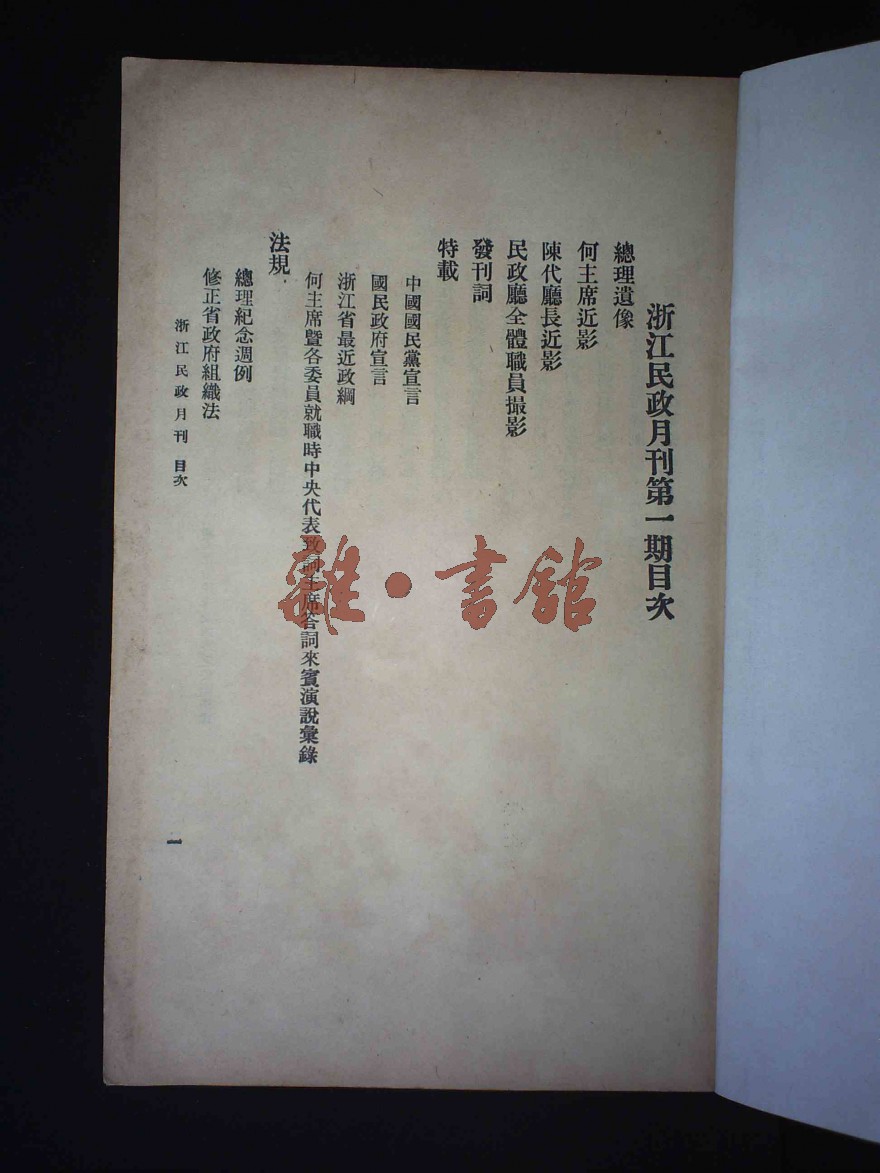 浙江民政月刊第一期目次
總理遺像
何主席近影
陳代廳長近影
民政廳全體職員撮影
發刊詞
特載
中國國民黨宣言
國民政府宣言
浙江省最近政綱
何主席暨各委員就職時中央代表致詞主席答詞來賓演說彙錄
法規
總理紀念週例
修正省政府組織法
浙江民政月刊 目次
一
雜·書館